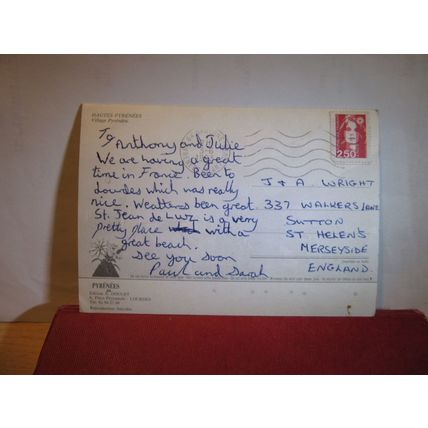 HAUTES PYRÉNÉES
Village Pyrénéen
To
Anthony and Julie
We are having a great
time in France. Been to
Lourdes which was really
nice. Weathers been great.
St. Jean de Luz is a very
pretty place with a
great beach.
See you soon
Paul and Sarah
2,50
J & A WRIGHT
337 WALKERS LANE
SUTTON
ST HELEN'S
MERSEYSIDE
ENGLAND
PYRÉNÉES
LOURDES